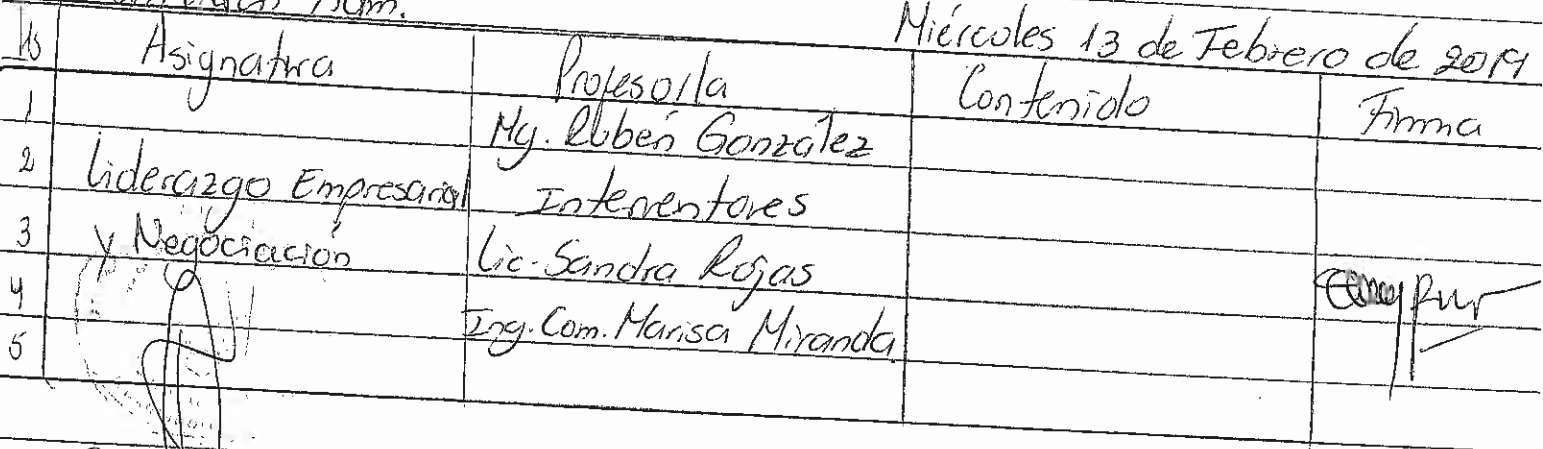 Miércoles 13 de Febrero de 2019
Hs Asignatura Profesor/la Contenido Firma
1 Mg. Rubén González
2 Liderazgo Empresarial Interventores
3 y Negociación Lic. Sandra Rojas
4 Ing. Com. Marisa Miranda
5